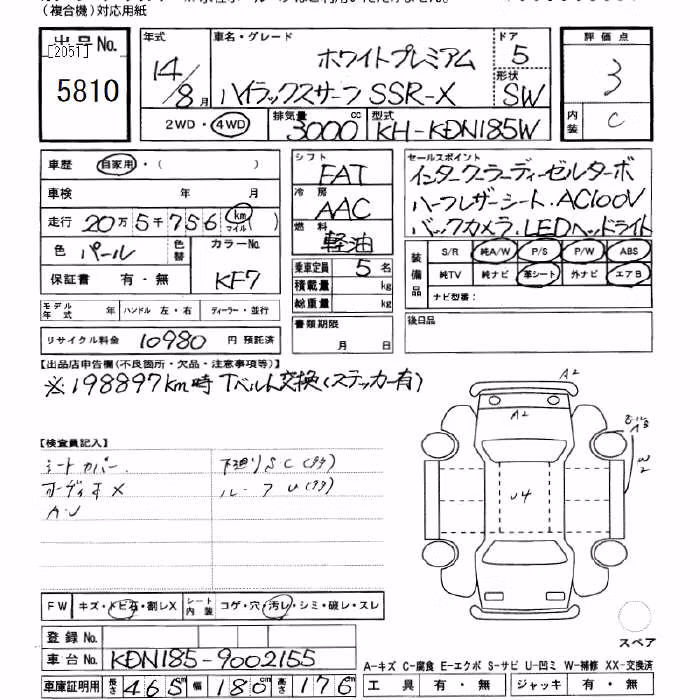 (複合機)対応用紙
出品No.
[2051]
5810
年式 車名・グレード ドア 評価点
ホワイトプレミアム 5
14/8月 ハイラックスサーフ SSR-X 形状 SW 3
2WD・4WD 排気量 3000cc 型式 KH-KDN185W 内装 C
車歴 自家用・( )
車検 年 月
走行 20万5千756 km マイル( )
色 パール 色替 カラーNo. KF7
保証書 有・無
シフト FAT
冷房 AAC
燃料 軽油
乗車定員 5名
積載量 kg
総重量 kg
書類期限 月 日
セールスポイント
インタークーラーディーゼルターボ
ハーフレザーシート・AC100V
バックカメラ・LEDヘッドライト
装備品 S/R 純A/W P/S P/W ABS
純TV 純ナビ 革シート 外ナビ エアB
ナビ型番:
後日品
モデル年式 年 ハンドル 左・右 ディーラー・並行
リサイクル料金 10980 円 預託済
【出品店申告欄(不良箇所・欠品・注意事項等)】
※198897km時 Tベルト交換(ステッカー有)
【検査員記入】
シートカバー 下廻りSC(タタ)
オーディオX ルーフU(タタ)
A・U
A2
A2
W2
U4
スペア
FW キズ・トビ石・割レX シート内装 コゲ・穴・汚レ・シミ・破レ・スレ
登録No.
車台No. KDN185-9002155
車庫証明用 長さ 465cm 幅 180cm 高さ 176cm
A-キズ C-腐食 E-エクボ S-サビ U-凹ミ W-補修 XX-交換済
工具 有・無 ジャッキ 有・無